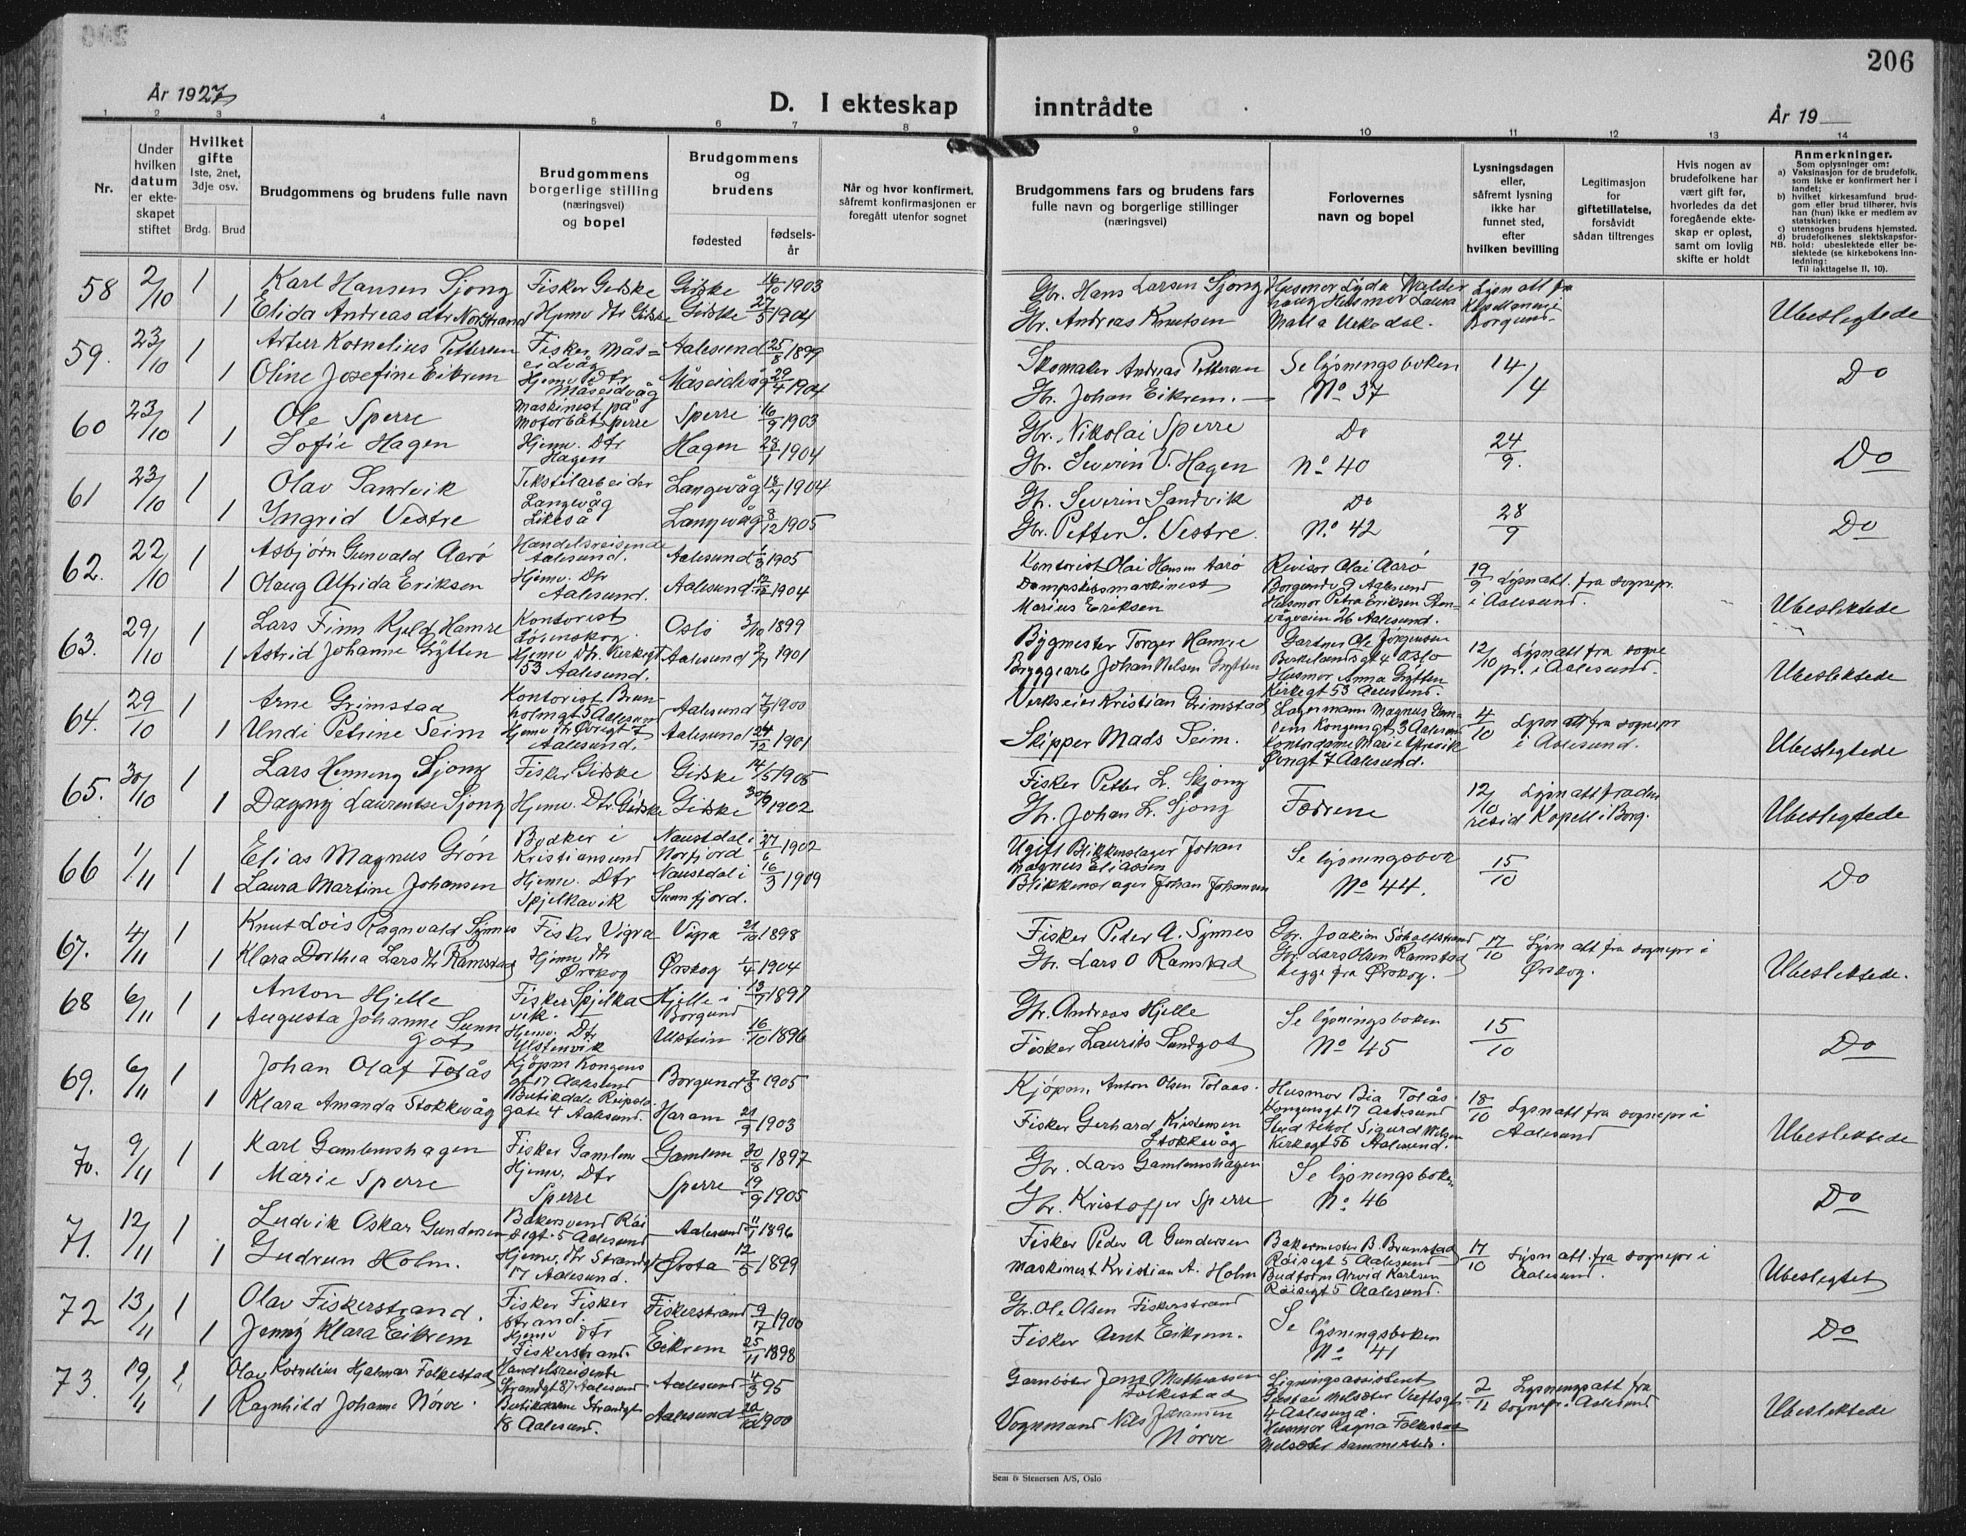 206
År 1927
D. I ekteskap inntrådte
År 19
1 2 3 4 5 6 7 8 9 10 11 12 13 14
Nr.
Under hvilken datum er ekteskapet stiftet
Hvilket gifte
1ste, 2net, 3dje osv.
Brdg. Brud
Brudgommens og brudens fulle navn
Brudgommens borgerlige stilling (næringsvei) og bopel
Brudgommens og brudens
fødested
fødselsår
Når og hvor konfirmert, såfremt konfirmasjonen er foregått utenfor sognet
Brudgommens fars og brudens fars fulle navn og borgerlige stillinger (næringsvei)
Forlovernes navn og bopel
Lysningsdagen eller, såfremt lysning ikke har funnet sted, efter hvilken bevilling
Legitimasjon for giftetillatelse, forsåvidt sådan tiltrenges
Hvis nogen av brudefolkene har vært gift før, hvorledes da det foregående ekteskap er opløst, samt om lovlig skifte er holdt
Anmerkninger.
Som oplysninger om:
a) Vaksinasjon for de brudefolk, som ikke er konfirmert her i landet;
b) hvilket kirkesamfund brudgom eller brud tilhører, hvis han (hun) ikke er medlem av statskirken;
c) utensogns brudens hjemsted.
d) brudefolkenes slektskapsforhold: ubeslektede eller beslektede (se kirkebokens innledning:
NB.
Til iakttagelse II, 10).
58 2/10 1 Karl Hansen Sjong Fisker Gidske Gidske 1903 Gbr. Hans Larsen Sjong Husmor Lyda Walderhaug Husmor Laura Lysn att fra
1 Elida Andreasdtr Norstrand Hjemv. dtr Gidske Gidske 27/5 1904 Gbr. Andreas Knutsen Borgund. Ubeslegtede
59. 23/10 1 Artur Kornelius Pettersen Fisker Måseidvåg Aalesund 25/8 1899 Skomaker Andreas Pettersen Se lysningsboken 14/4
1 Oline Josefine Eikrem Hjemv Dtr Måseidvåg Måseidvåg 29/4 1904 Gbr. Johan Eikrem. No 37 Do
60 23/10 1 Ole Sperre Maskinist på Motorbåt Sperre Sperre 16/9 1903 Gbr. Nikolai Sperre Do 24/9.
1 Sofie Hagen Hjemv. Dtr Hagen Hagen 28/1 1904 Gbr. Severin V. Hagen No 40 Do
61 23/10 1 Olav Sandvik Tekstilarbeider Langevåg Langevåg 18/7 1904 Gbr. Severin Sandvik Do 28/9
1 Ingrid Vestre Likeså Langevåg 8/12 1905 Gbr. Petter S. Vestre. No. 42 Do
62. 22/10 1 Asbjørn Gunvald Aarö Handelsreisende Aalesund. Aalesund 1/3 1905 Kontorist Olai Hansen Aarö Revisor Olai Aarö Borgundv 9 Aalesund 19/9 Lysn att. fra sognepr. i Aalesund.
1 Olaug Alfrida Eriksen Hjemv. Dtr Aalesund. Aalesund 1904 Dampskibsmaskinist Marius Eriksen Husmor Petra Eriksen Stenvågveien 26 Aalesund. Ubeslektede
63. 29/10 1 Lars Finn Kjeld Hamre Kontorist Lörenskog. Oslo 3/10 1899 Bygmester Torger Hamre Gartner Ole Jörgensen Birkelandsgt 4 Oslo 12/10 Lysn att fra sognepr. i Aalesund.
1 Astrid Johanne Gytten Hjemv Dtr. Kirkegt 53 Aalesund. Aalesund 2/7 1901 Bryggearb Johan Nilsen Gytten Husmor Anna Gytten Kirkegt 53 Aalesund. Ubeslektede
64. 29/10 1 Arne Grimstad Kontorist Brunholmgt 5 Aalesund Aalesund 7/9 1900 Verkseier Kristian Grimstad Lagermann Magnus Kongensgt 3 Aalesund 4/10 Lysn att fra sognepr i Aalesund.
1 Undi Petrine Seim Hjemv Dtr Øvregt 7 Aalesund. Aalesund 24/12 1901 Skipper Mads Seim. Kontordame Marie Øvregt 7 Aalesund. Ubeslegtede
65. 30/10 1 Lars Henning Sjong Fisker Gidske Gidske 14/5 1905 Fisker Petter L. Skjong Fedrene 12/10 Lysn att fra den resid Kapell i Borg.
1 Dagny Laurentse Sjong Hjemv. Dtr. Gidske Gidske 30/9 1902 Gbr. Johan L. Sjong Ubeslegtede
66 1/11 1 Elias Magnus Grön Bødker i Kristiansund Naustdal i Norfjord 27/6 1902 Ugift Blikkenslager Johan Magnus Eliassen Se lysningsbok 15/10
1 Laura Martine Johansen Hjemv. Dtr Spjelkavik Naustdal i Sunnfjord. 16/3 1909 Blikkenslager Johan Johansen No 44. Do
67. 4/11 1 Knut Lois Ragnvald Synnes Fisker Vigra Vigra 21/10 1898 Fisker Peder A. Synnes Gbr. Joakim Scholtstrand 17/10 Lysn att fra sognepr i Ørskog.
1 Klara Dorthea Larsdtr Ramstad Hjemv dtr Ørskog Ørskog 1/4 1904 Gbr. Lars O Ramstad Gbr. Lars Olsen Ramstad begge fra Ørskog. Ubeslektede.
68 6/11 1 Anton Hjelle Fisker Spjelkavik. Hjelle i Borgund 1897 Gbr. Andreas Hjelle Se lysningsboken 15/10
1 Augusta Johanne Sunngot Hjemv. Dtr Ulsteinvik Ulstein 16/10 1896 Fisker Laurits Sundgot No 45 Do
69. 6/11 1 Johan Olaf Tolås Kjöpm Kongens gt 17 Aalesund Borgund 1905 Kjöpm. Anton Olsen Tolaas. Husmor Bia Tolås. Kongensgt 17 Aalesund 18/10 Lysn att fra sognepr i Aalesund
1 Klara Amanda Stokkevåg Butikdame gate 4 Aalesund. Haram 21/9 1903 Fisker Gerhard Kristensen Stokkevåg Sigurd Kirkegt 56 Aalesund. Ubeslektede
70. 9/11 1 Karl Gamlemshagen Fisker Gamlem Gamlem 30/8 1897 Gbr. Lars Gamlemshagen Se lysningsboken
1 Marie Sperre Hjemv. Dtr Sperre Sperre 19/9 1905 Gbr. Kristoffer Sperre No. 46 Do
71. 12/11 1 Ludvik Oskar Gundersen Bakersvend Röisegt. 5 Aalesund Aalesund 11/1 1896 Fisker Peder A Gundersen Bakermester B. Brunstad Röisegt 5 Aalesund 17/10 Lysn att. fra sognepr i Aalesund.
1 Gudrun Holm. Hjemv. dtr Strandgt 17 Aalesund. Ørsta 12/5 1899 Maskinest Kristian A. Holm Budform Arvid Karlsen Röisegt 5 Aalesund. Ubeslegtet
72 13/11 1 Olav Fiskerstrand. Fisker Fiskerstrand. Fiskerstrand 9/7 1900 Gbr. Ole Olsen Fiskerstrand Se lysningsboken
1 Jenny Klara Eikrem Hjemv dtr Fiskerstrand. Eikrem 25/11 1898 Fisker Arnt Eikrem. No 41 Do
73. 19/11 1 Olav Kornelius Hjalmar Folkestad Handelsreisende Strandgt 87 Aalesund Aalesund 4/3 95 Garnbøter Jens Mathiassen Folkestad Ligningsassistent Gustav Melsæter 4 Aalesund. 2/11 Lysningsatt fra sognepr i Aalesund
1 Ragnhild Johanne Nörve. Butikdame Strandgt 18 Aalesund. Aalesund 1900 Vognmand Nils Johansen Nörve Husmor Ragna Folkestad Melsæter sammesteds. Ubeslektede
Sem & Stenersen A/S, Oslo